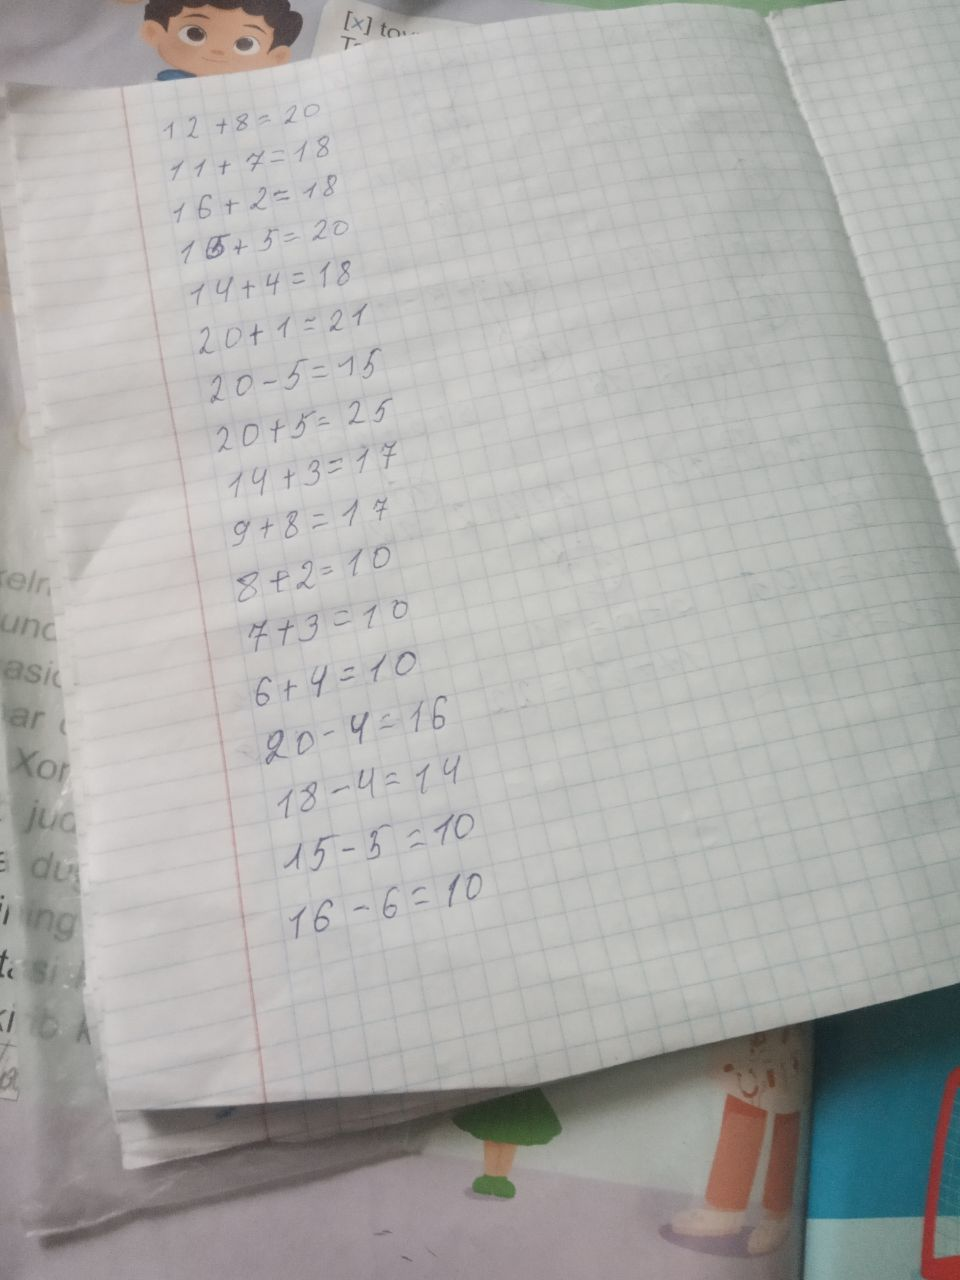 [x] tov
12+8=20
11+7=18
16+2=18
15+5=20
14+4=18
20+1=21
20-5=15
20+5=25
14+3=17
9+8=17
8+2=10
7+3=10
6+4=10
20-4=16
18-4=14
15-5=10
16-6=10